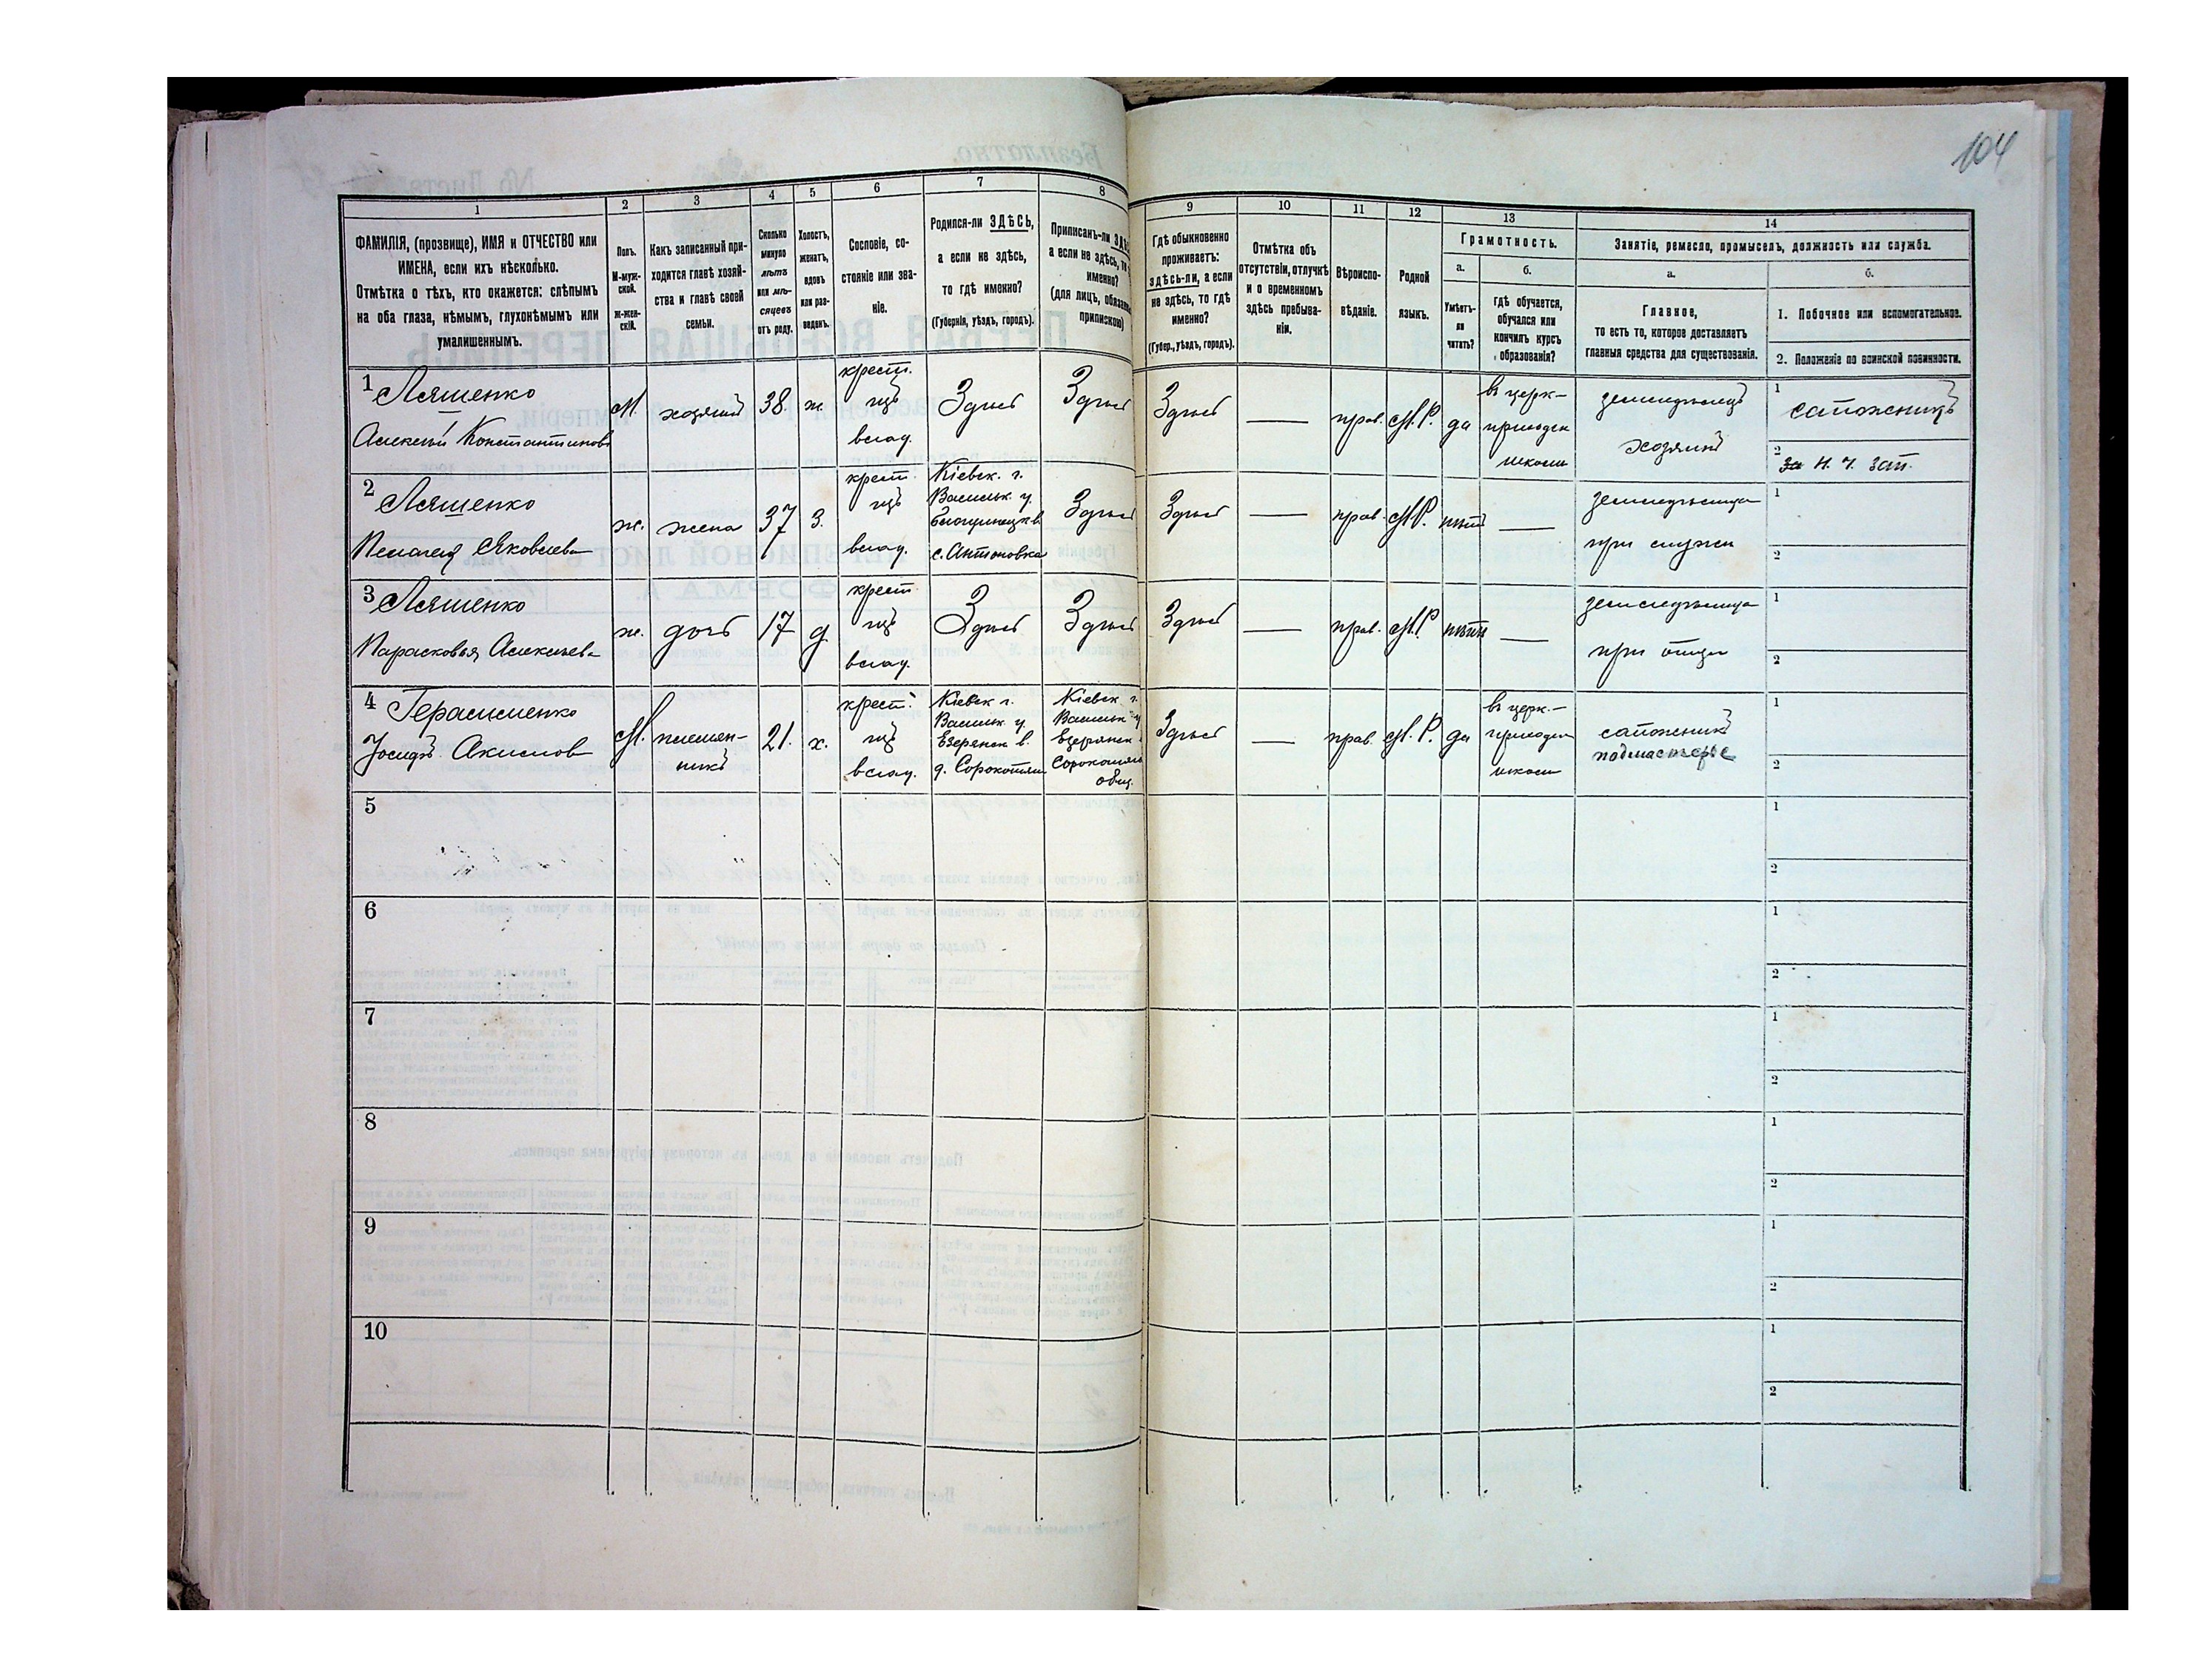 104
1
2
3
4
5
6
7
8
9
10
11
12
13
14
ФАМИЛІЯ, (прозвище), ИМЯ и ОТЧЕСТВО или
ИМЕНА, если ихъ нѣсколько.
Отмѣтка о тѣхъ, кто окажется: слѣпымъ
на оба глаза, нѣмымъ, глухонѣмымъ или
умалишеннымъ.
Полъ.
М-муж-
ской.
Ж-жен-
скій.
Какъ записанный при-
ходится главѣ хозяй-
ства и главѣ своей
семьи.
Сколько
минуло
лѣтъ
или мѣ-
сяцевъ
отъ роду.
Холостъ,
женатъ,
вдовъ
или раз-
веденъ.
Сословіе, со-
стояніе или зва-
ніе.
Родился-ли ЗДѢСЬ,
а если не здѣсь,
то гдѣ именно?
(Губернія, уѣздъ, городъ).
Приписанъ-ли
а если не здѣсь,
именно?
(для лицъ,
припискою)
Гдѣ обыкновенно
проживаетъ:
здѣсь-ли, а если
не здѣсь, то гдѣ
именно?
(Губер., уѣздъ, городъ).
Отмѣтка объ
отсутствіи, отлучкѣ
и о временномъ
здѣсь пребыва-
ніи.
Вѣроиспо-
вѣданіе.
Родной
языкъ.
Грамотность.
а.
Умѣетъ-
ли
читать?
б.
гдѣ обучается,
обучался или
кончилъ курсъ
образованія?
Занятіе, ремесло, промыселъ, должность или служба.
а.
Главное,
то есть то, которое доставляетъ
главныя средства для существованія.
б.
1. Побочное или вспомогательное.
2. Положеніе по воинской повинности.
1 Ляшенко
Алексѣй Константиновъ
М.
хозяинъ
38
ж.
крест.
изъ
влад.
Здѣсь
Здѣсь
Здѣсь
—
прав.
М.Р.
да
въ церк-
приходск
школѣ
земледѣлецъ
хозяинъ
1
сапожникъ
2
н. ч. зап.
2 Ляшенко
Пелагея Яковлева
ж.
жена
37
З.
крест
изъ
влад.
Кіевск. г.
Васильк. у.
с. Антоновка
Здѣсь
Здѣсь
—
прав.
М.Р.
нѣтъ
—
земледѣлица
при мужѣ
1
2
3 Ляшенко
Парасковья Алексѣева
ж.
дочь
17
д
крест
изъ
влад.
Здѣсь
Здѣсь
Здѣсь
—
прав.
М.Р
нѣтъ
—
земледѣлица
при отцѣ
1
2
4 Герасименко
Іосифъ Акимов
М.
племен-
никъ
21.
х.
крест.
изъ
влад.
Кіевск г.
Васильк у.
Езерянск в.
д. Сорокотяги
Кіевск. г.
Васильк у
Езерянск
общ.
Здѣсь
—
прав.
М.Р.
да
въ церк.-
приходск
школѣ
сапожникъ
подмастерье
1
2
5
1
2
6
1
2
7
1
2
8
1
2
9
1
2
10
1
2